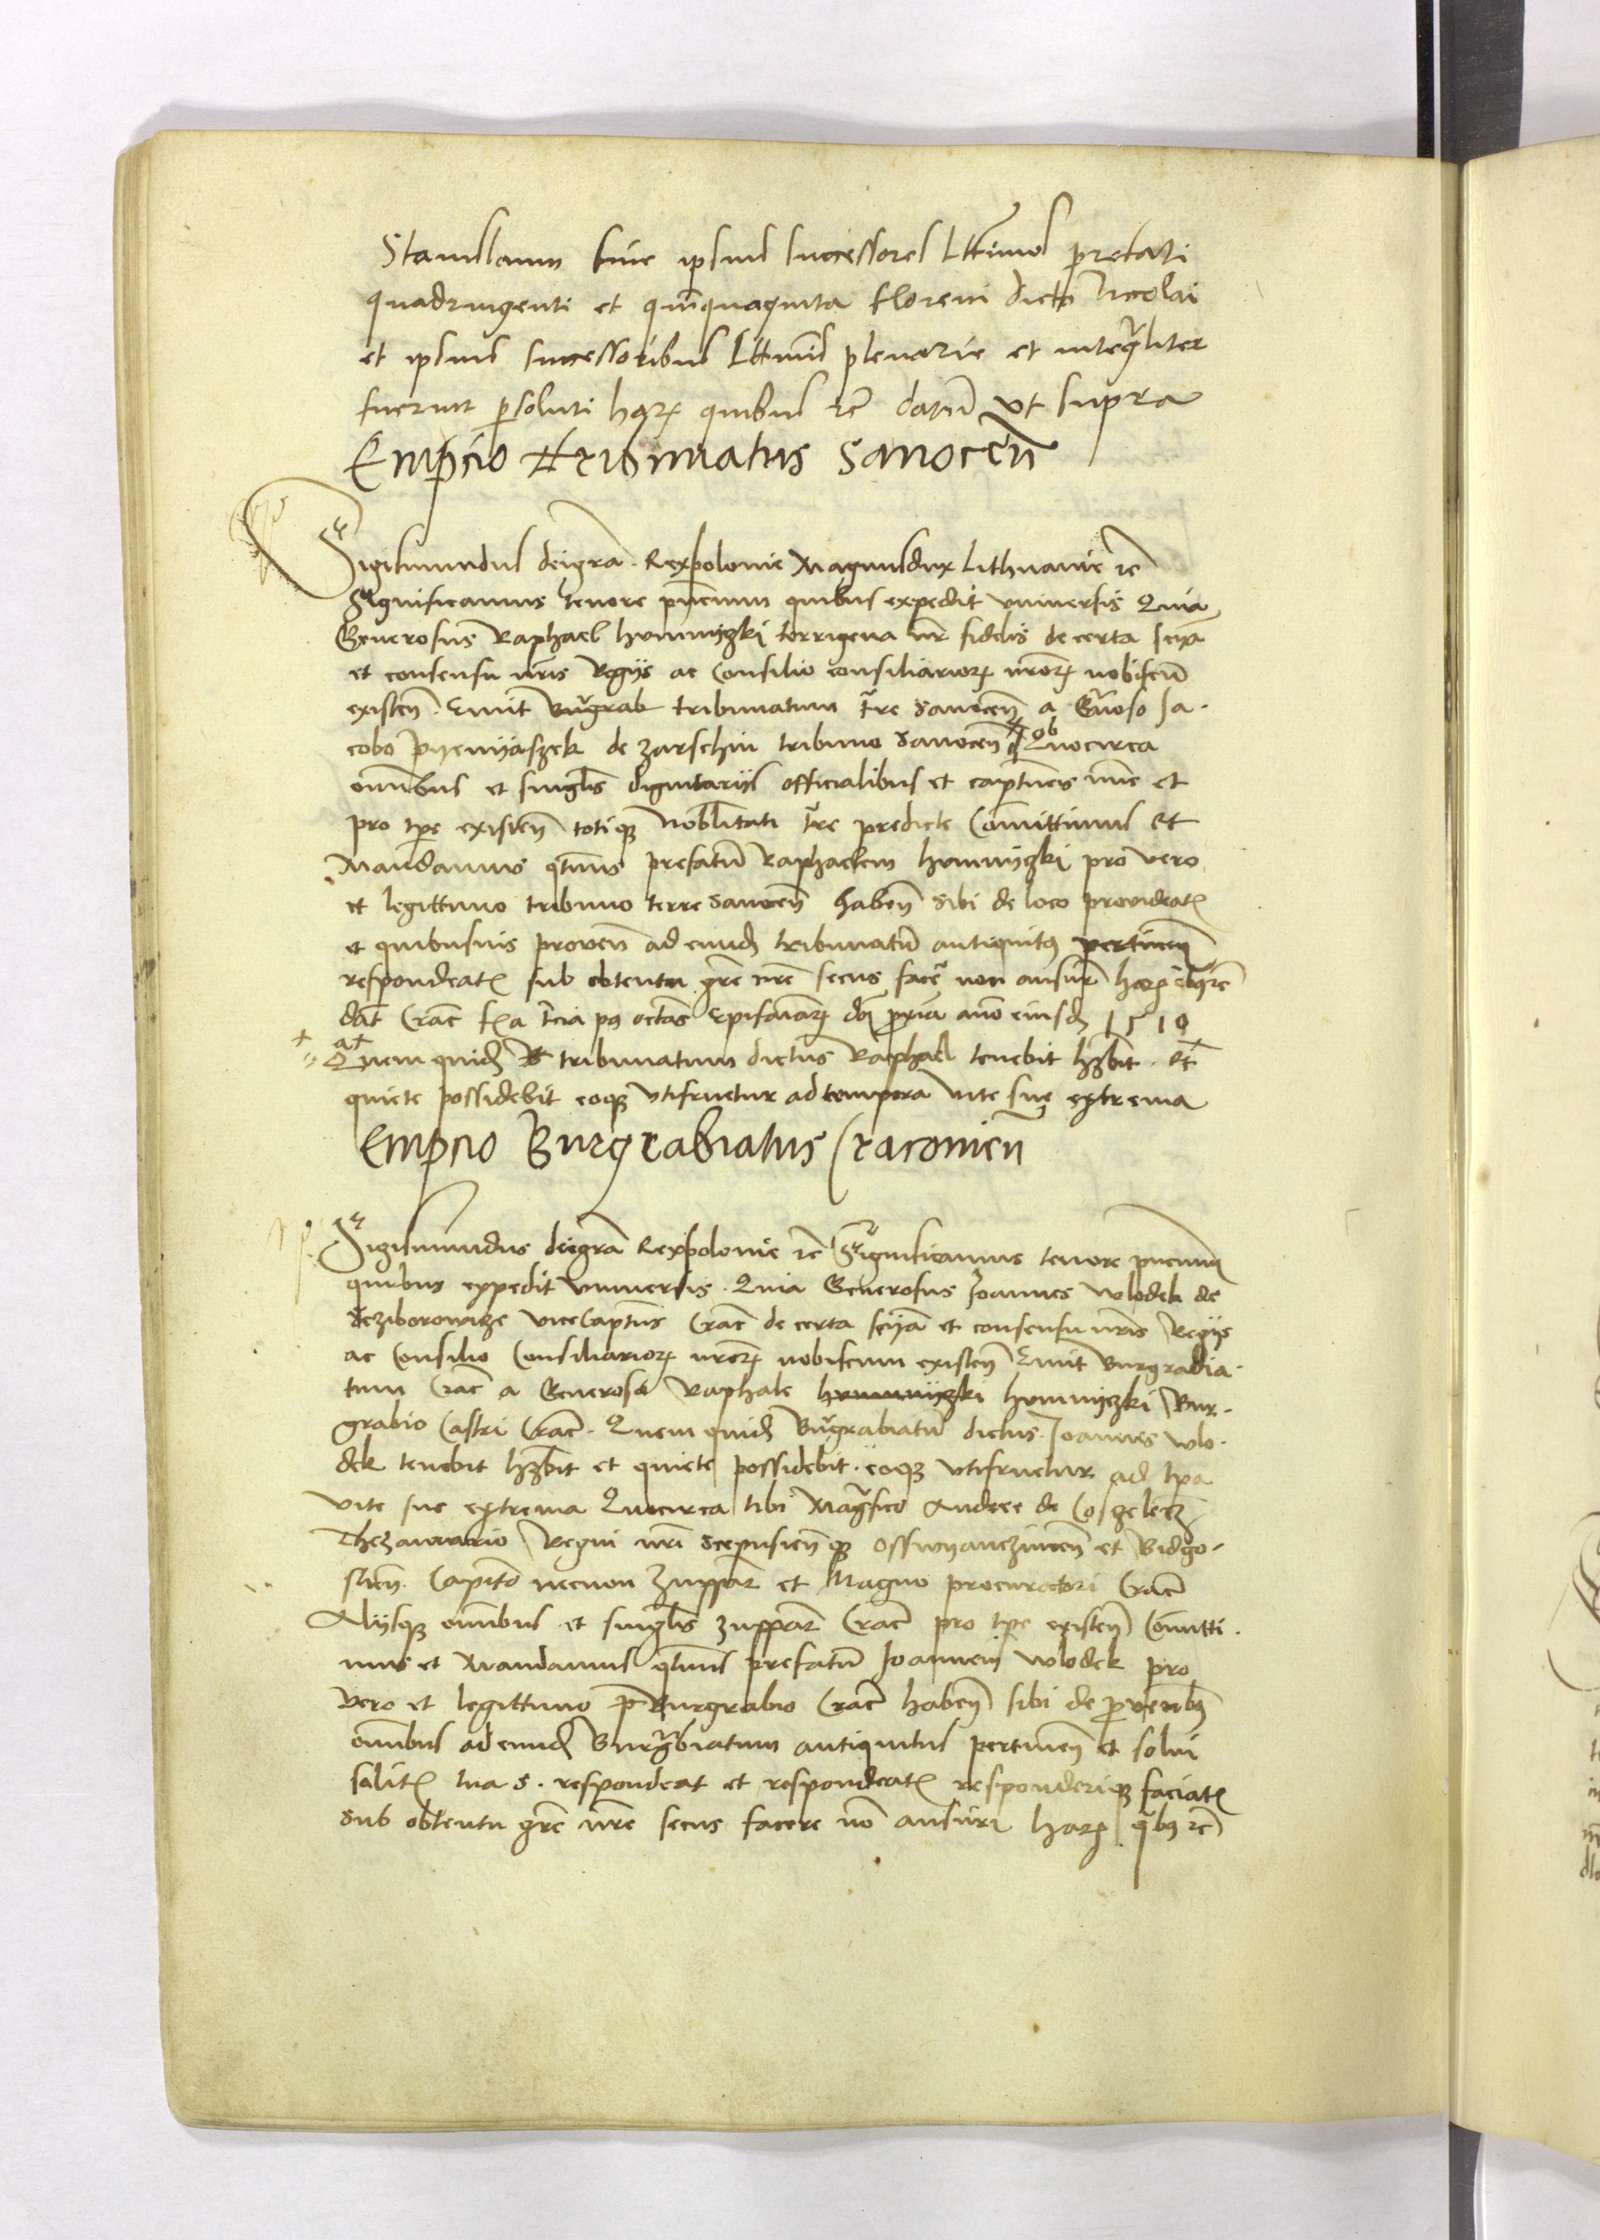 Stanislaum siue ipsius successores l̄ttimos prefati
quadringenti et quīnquaginta floreni dicto Nicolai
et ipsius successoribus l̄ttimis plenarie et integraliter
fuerint persoluti harꝝ quibus ꝛc̄ datū vt supra
Empcio tribunatus Sanocen̄
Sigismundus deigrā Rex polonie Magnusdux Lithuanie ꝛc̄
Significamus tenore pn̄cium quibus expedit vniuersis Quia
Generosus Raphael humnyczki terrigena nr̄ fidelis de certa scīa
et consensu nr̄is Regijs ac Consilio consiliariorꝝ nr̄orꝝ nobiscū
existen̄. Emit burgrab tribunatum tr̄e Sanocen̄ a Gn̄oso Ja-
cobo Pyenyaszek de zarschin tribuno Sanocen̄ ob Quocirca
omībus et singl̄is dignitarijs officialibus et capitneis nūc et
pro tp̄e existen̄ totiqꝫ nobl̄itati tr̄e predicte Comittimus et
Mandamus q̄tnus prefatū Raphaelem humnyczki pro vero
et legittimo tribuno terre Sanocen̄ haben̄ sibi de loco prouideatꝭ
et quibusuis prouen̄ ad eundꝫ tribunatū antiquitus pertinen̄
respondeatꝭ sub obtentu gr̄e nr̄e secus facere non ausuri harꝝ qbꝰ ꝛc̄
dat̄ Crac̄ fr̄ia t̄cia pꝰ octauas Epifaniarꝝ dn̄i proxīa año eiusdꝫ 1510
Quem quidꝫ tribunatum dictus Raphael tenebit hr̄bit. et
quiete possidebit eoqꝫ vtifruetur ad tempora vite sue extrema
Empcio Burgrabiatus Cracouien̄
Sigismundus deigrā Rex polonie ꝛc̄ Significamus tenore pn̄cium
quibus expedit vniuersis. Quia Generosus Joannes wlodek de
deziborowicze vicecaptn̄s Crac̄ de certa scīa et consensu nr̄is Regijs
ac Consilio Consiliariorꝝ nr̄orꝝ nobiscum existen̄ Emit burgrabia-
tum Crac̄ a Generoso Raphale humnyczki humnyczki Bur-
grabio Castri Crac̄. Quem quidꝫ Burgrabiatū dictus Joannes wlo-
dek tenebit hr̄bit et quiete possidebit. eoqꝫ vtifruetur ad tpa
vite sue extrema Quocirca tibi Magfico Andree de Cosczelecz
Thezaurario Regni nr̄i Scepusien̄ qꝫ Osswyanczimen̄ et Bidgo-
stien̄. Capitō necnon zuppar̄ et Magno procuratori Crac̄
Alijsqꝫ omībus et singl̄is zuppar̄ Crac̄ pro tp̄e existen̄ Comitti-
mus et Mandamus q̄tnus prefatū Joannem wlodek pro
vero et legittimo Burgrabio Crac̄ haben̄ sibi de prouentibꝰ
omībus ad eundꝫ Burgr̄biatum antiquitus pertinen̄ et solui
solitꝭ tua s. respondeat et respondeatꝭ responderiqꝫ faciatꝭ
sub obtentu gr̄e nr̄e secus facere nō ausuri harꝝ qbꝰ ꝛc̄